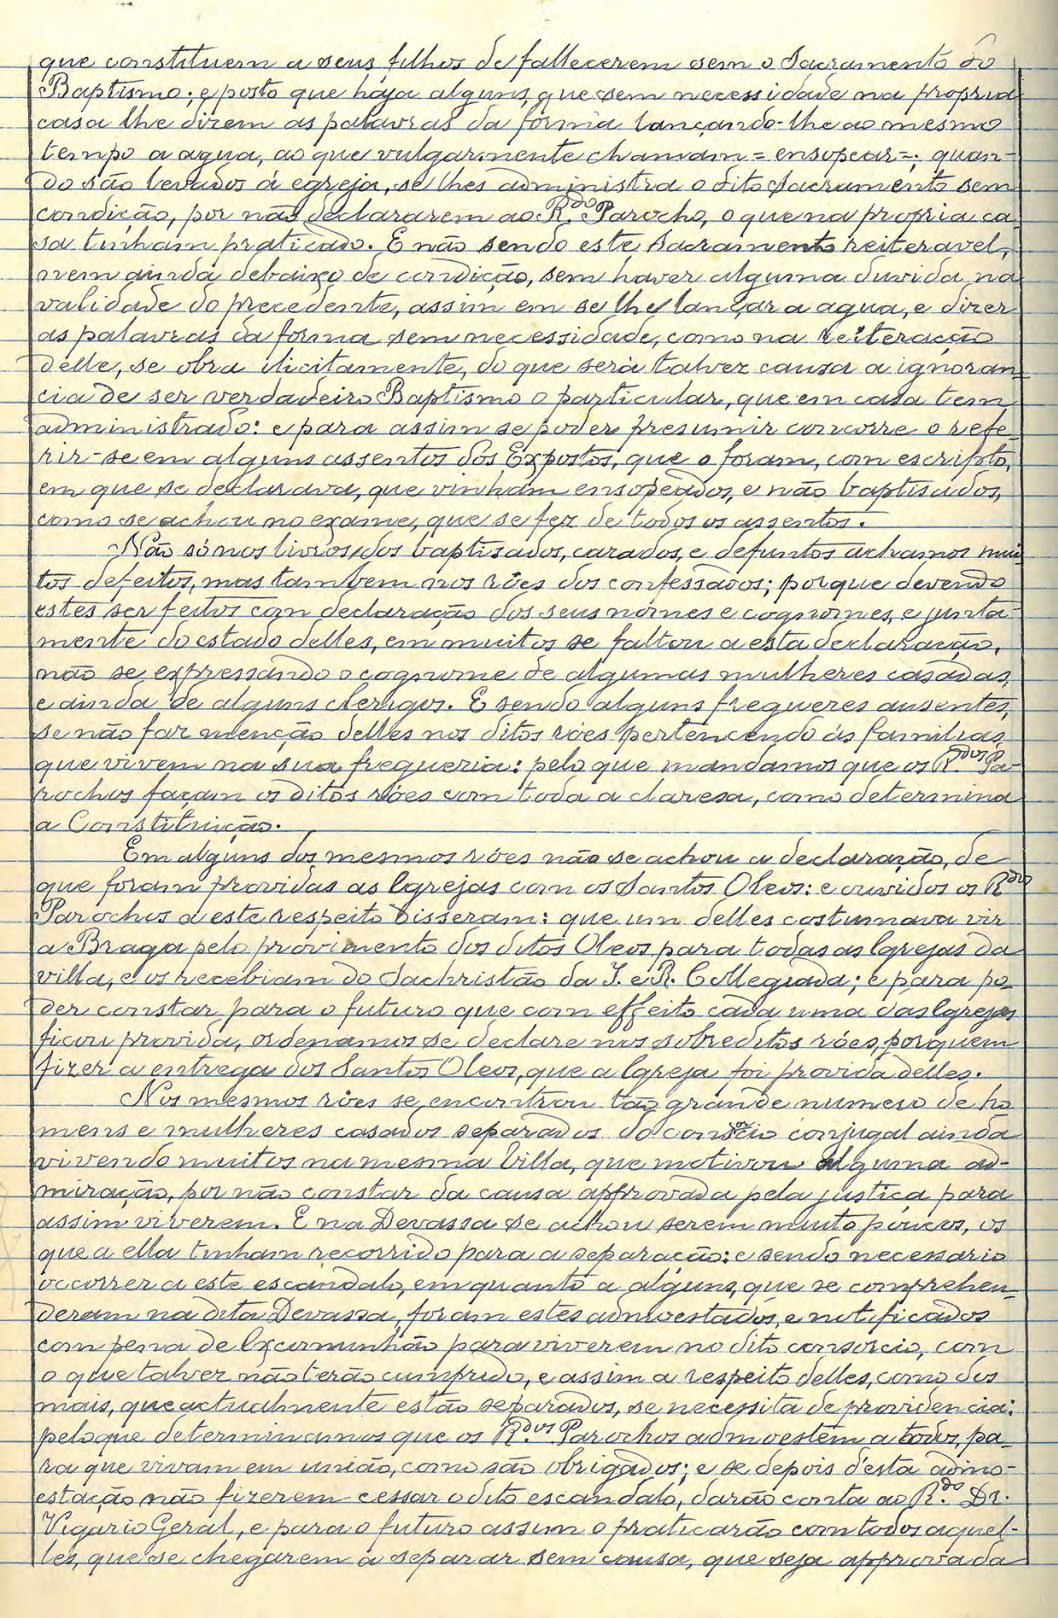 que constituem a seus filhos de fallecerem sem o Sacramento do
Baptismo; e posto que haja alguns, que sem necessidade na propria
casa lhe dizem as palavras da fórma lançando-lhe ao mesmo
tempo a agua, ao que vulgarmente chamam = ensopear =; quan-
do são levados á egreja, se lhes administra o dito Sacramento sem
condição, por não declararem ao R.do Parocho, o que na propria ca
sa tinham praticado. E não sendo este Sacramento reiteravel,
nem ainda debaixo de condição, sem haver alguma duvida na
validade do precedente, assim em se lhe lançar a agua, e dizer
as palavras da forma sem necessidade, como na reiteração
delle, se obra illicitamente, do que será talvez causa a ignoran
cia de ser verdadeiro Baptismo o particular, que em casa tem
administrado: e para assim se poder presumir concorre o refe-
rir-se em alguns assentos dos Expostos, que o foram, com escripto,
em que se declarava, que vinham ensopeados, e não baptisados,
como se achou no exame, que se fez de todos os assentos.
Não só nos livros dos baptisados, casados, e defuntos achamos mui
tos defeitos, mas tambem nos róes dos confessados; porque devendo
estes ser feitos com declaração dos seus nomes e cognomes, e junta-
mente do estado delles, em muitos se faltou a esta declaração,
não se expressando o cognome de algumas mulheres casadas,
e ainda de alguns clerigos. E sendo alguns freguezes ausentes,
se não faz menção delles nos ditos róes pertencendo ás familias,
que vivem na sua freguezia: pelo que mandamos que os R.dos Pa-
rochos façam os ditos róes com toda a claresa, como determina
a Constituição.
Em alguns dos mesmos róes não se achou a declaração, de
que foram providas as Igrejas com os Santos Oleos: e ouvidos os R.dos
Parochos a este respeito disseram: que um delles costumava vir
a Braga pelo provimento dos ditos Oleos para todas as Igrejas da
villa, e os recebiam do Sachristão da I. e R. Collegiada; e para po-
der constar para o futuro que com effeito cada uma das Igrejas
ficou provida, ordenamos se declare nos sobreditos róes, por quem
fizer a entrega dos Santos Oleos, que a Igreja foi provida delles.
Nos mesmos róes se encontrou tão grande numero de ho
mens e mulheres casados separados do consorcio conjugal ainda
vivendo muitos na mesma Villa, que motivou alguma ad-
miração, por não constar da causa approvada pela justiça para
assim viverem. E na Devassa se achou serem muito poucos, os
que a ella tinham recorrido para a separação: e sendo necessario
occorrer a este escandalo, em quanto a alguns, que se comprehen-
deram na dita Devassa, foram estes admoestados, e notificados
com pena de Excommunhão para viverem no dito consorcio, com
o que talvez não terão cumprido, e assim a respeito delles, como dos
mais, que actualmente estão separados, se necessita de providencia:
pelo que determinamos que os R.dos Parochos admoestem a todos, pa-
ra que vivam em união, como são obrigados; e se depois d'esta admo-
estação não fizerem cessar o dito escandalo, darão conta ao R.do Dr.
Vigario Geral, e para o futuro assim o praticarão com todos aquel-
les, que se chegarem a separar sem causa, que seja approvada